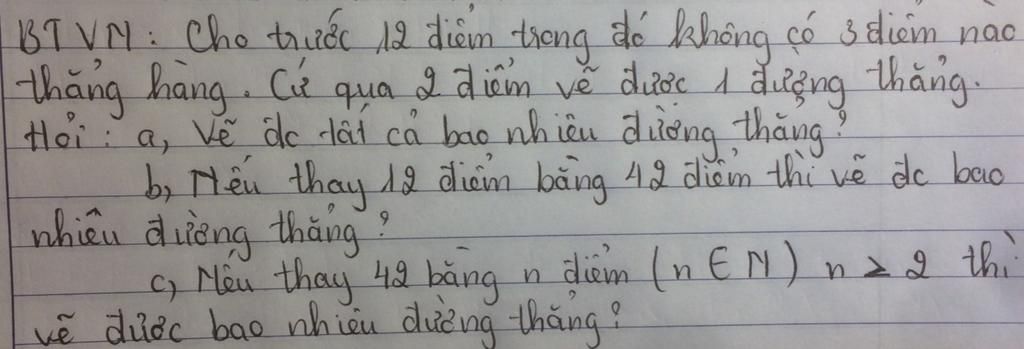 BTVN: Cho trước 12 điểm trong đó không có 3 điểm nào
thẳng hàng. Cứ qua 2 điểm vẽ được 1 đường thẳng.
Hỏi: a, Vẽ đc tất cả bao nhiêu đường thẳng?
b, Nếu thay 12 điểm bằng 42 điểm thì vẽ đc bao
nhiêu đường thẳng?
c, Nếu thay 42 bằng n điểm (n ∈ N) n ≥ 2 thì
vẽ được bao nhiêu đường thẳng?